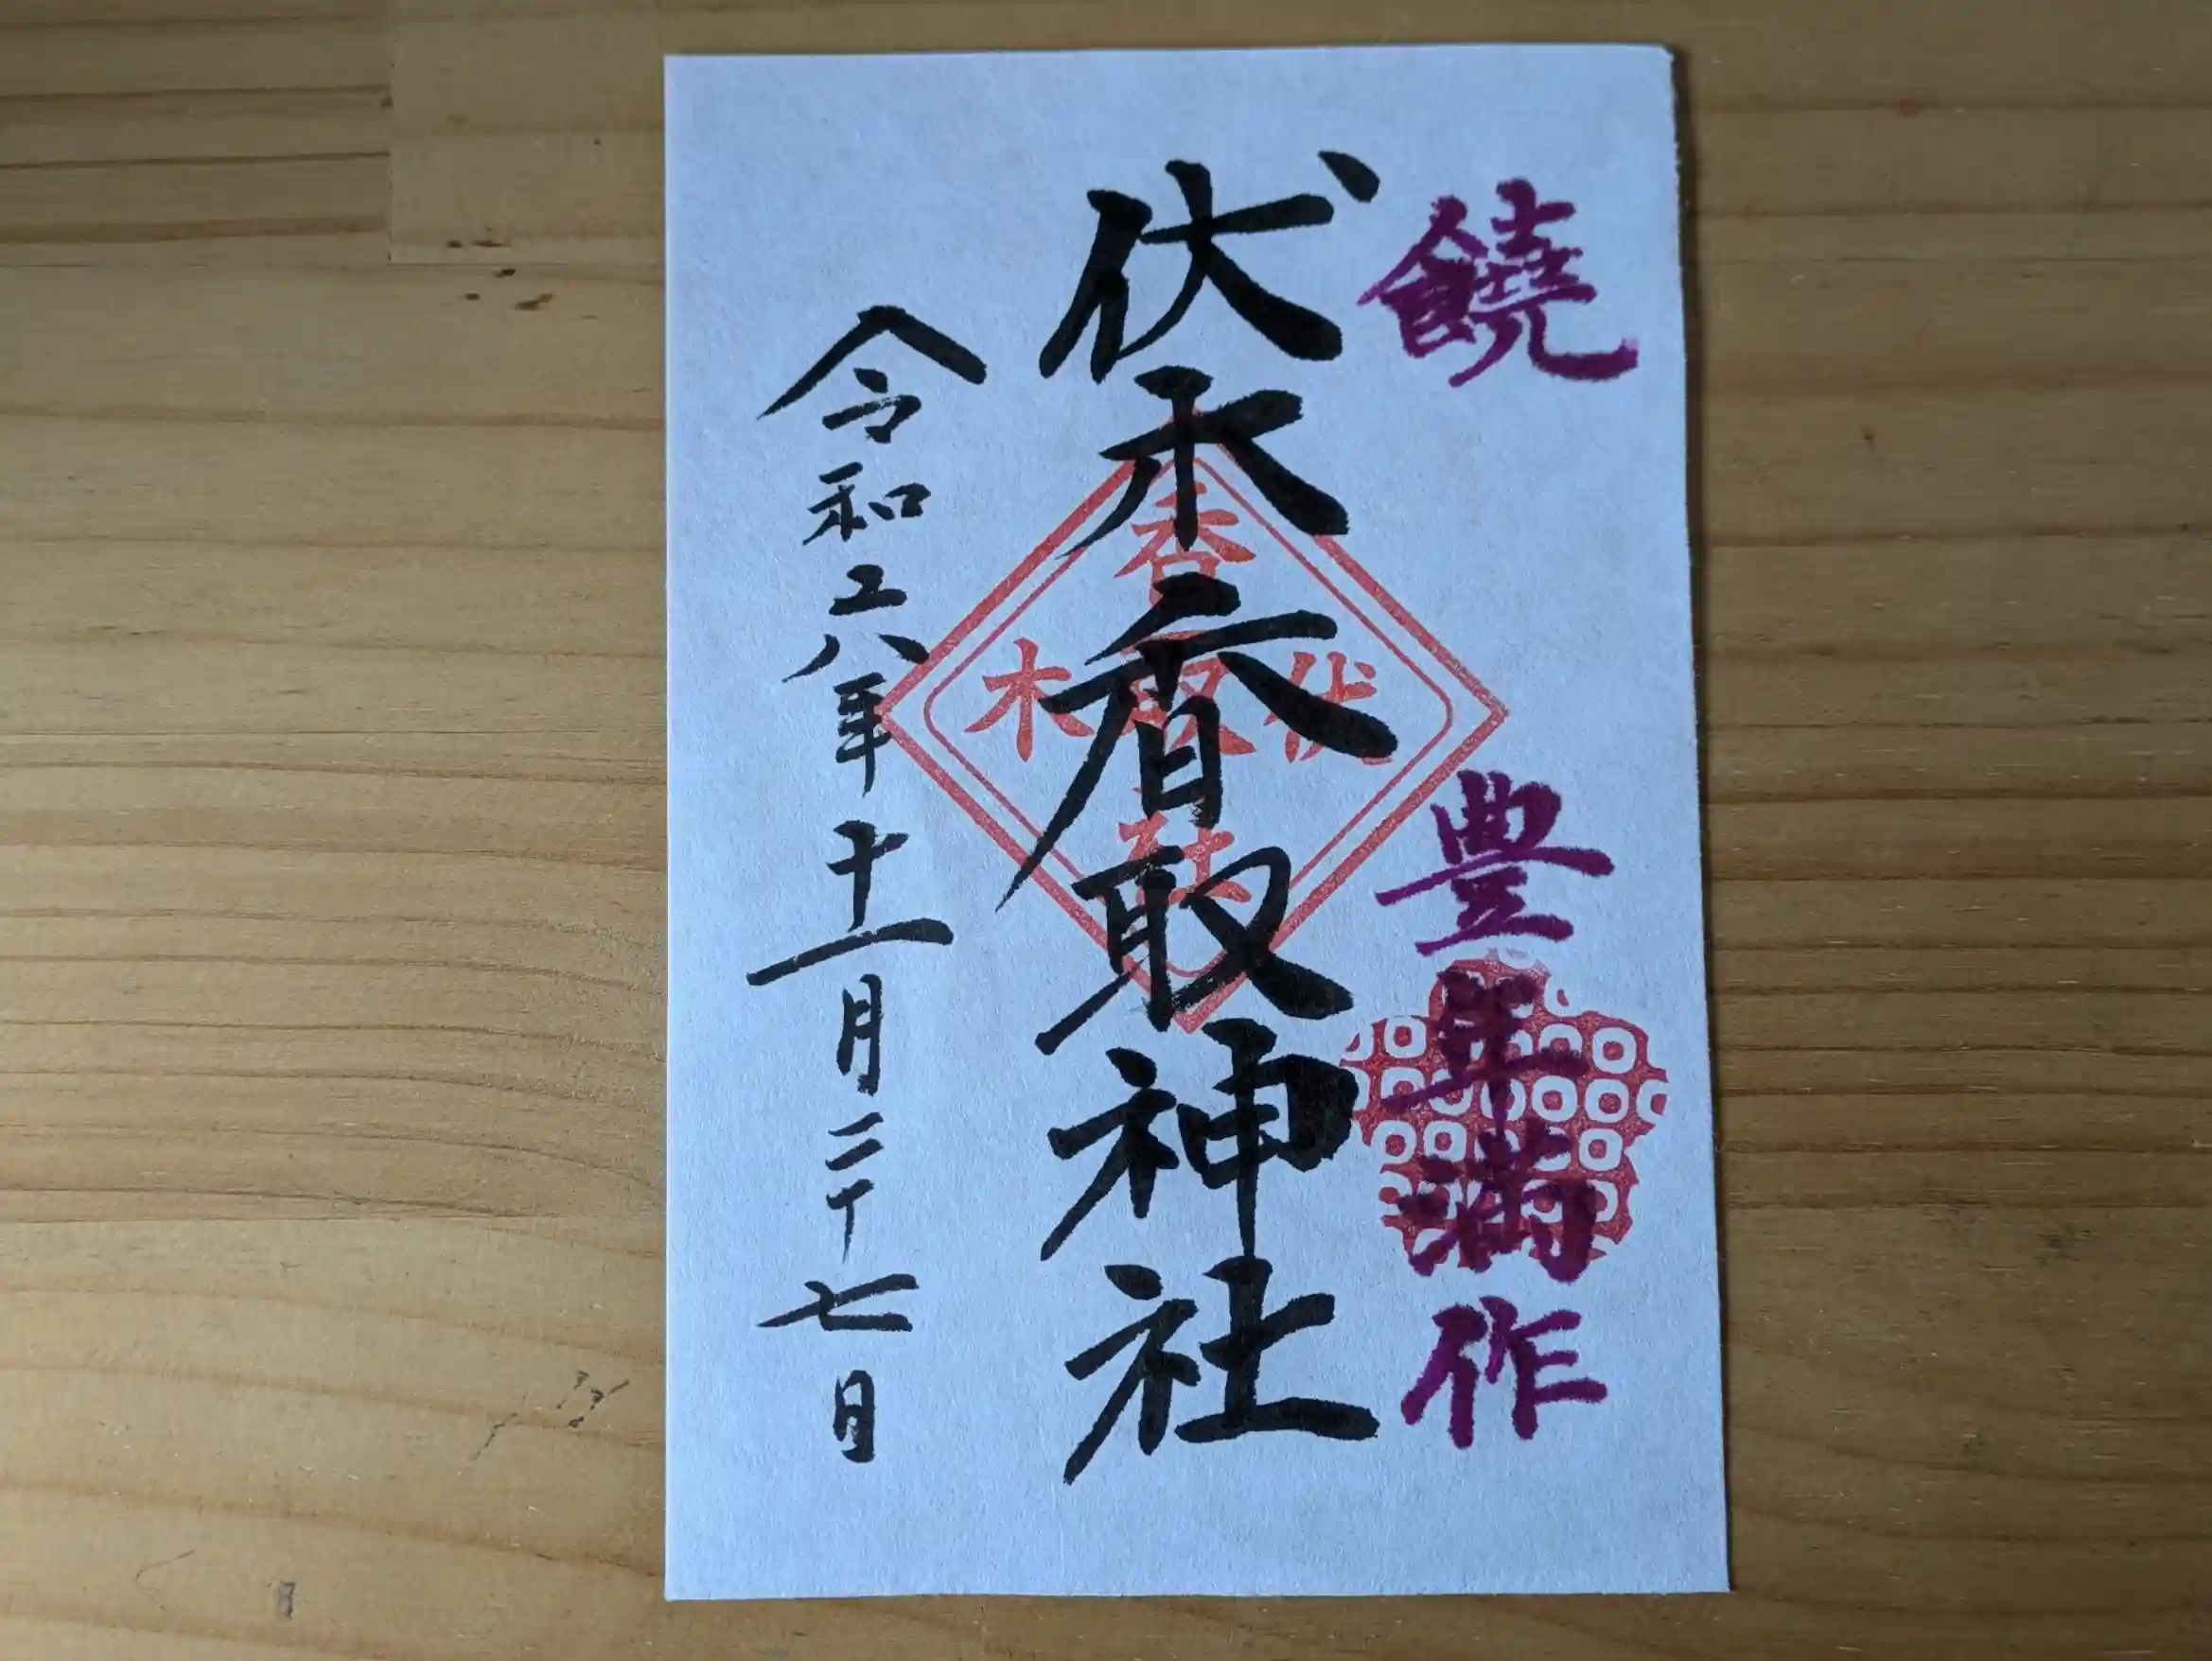 饒 豊年満作
伏木香取神社
香
伏取木
社
令和六年十一月二十七日